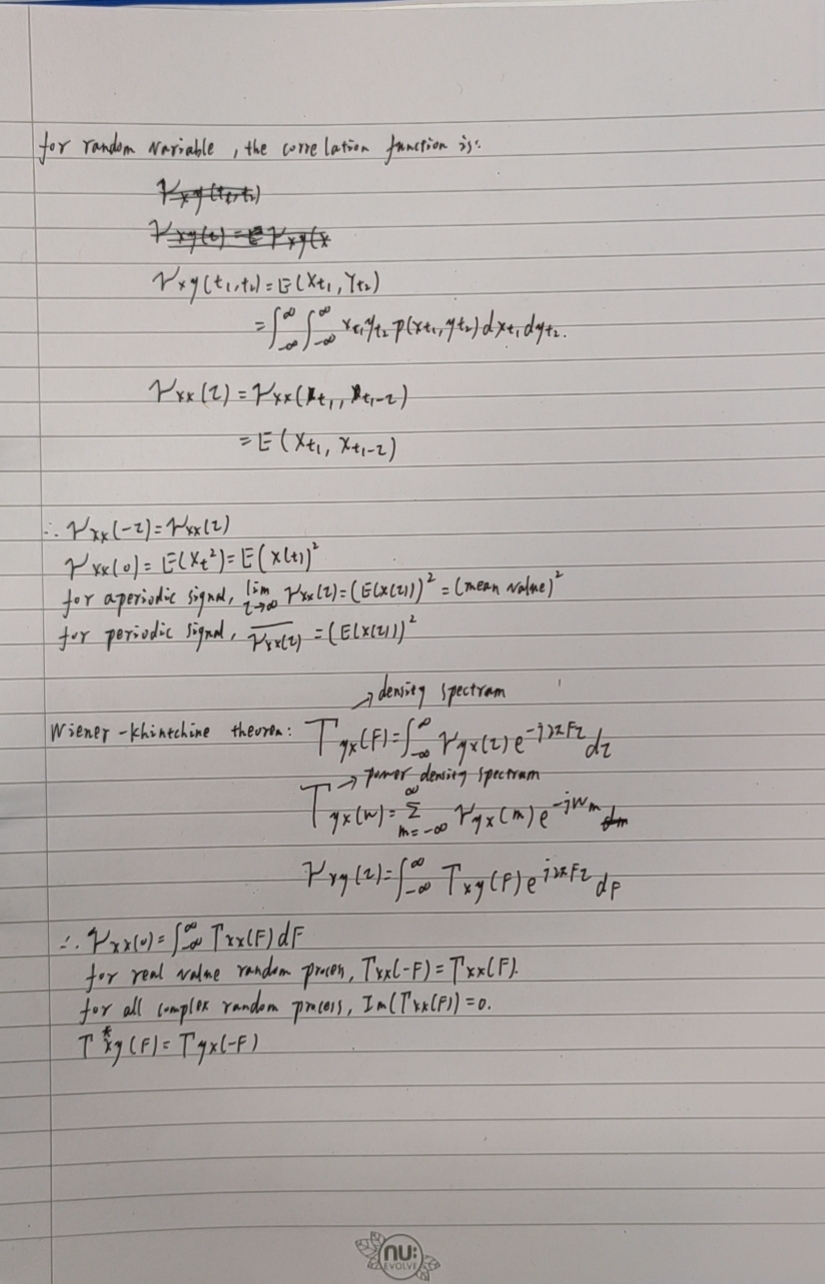 for random variable, the correlation function is:
γxy(t1,t2)
γxy(τ) = E γxy(x
γxy(t1,t2) = E(Xt1, Yt2)
= ∫_{-∞}^{∞} ∫_{-∞}^{∞} xt1 yt2 p(xt1, yt2) dxt1 dyt2.
γxx(τ) = γxx(t1, t1-τ)
= E(Xt1, Xt1-τ)
∴ γxx(-τ) = γxx(τ)
γxx(0) = E(Xt²) = E(x(t))²
for aperiodic signal, lim_{τ→∞} γxx(τ) = (E(x(τ)))² = (mean value)²
for periodic signal, \overline{γxx(τ)} = (E(x(τ)))²
→ density spectram
Wiener-Khintchine theorem: Γyx(F) = ∫_{-∞}^{∞} γyx(τ) e^{-j2πFτ} dτ
→ power density spectram
Γyx(w) = Σ_{m=-∞}^{∞} γyx(m) e^{-jwm} dm
γxy(τ) = ∫_{-∞}^{∞} Γxy(F) e^{j2πFτ} dF
∴ γxx(0) = ∫_{-∞}^{∞} Γxx(F) dF
for real value random process, Γxx(-F) = Γxx(F).
for all complex random process, Im(Γxx(F)) = 0.
Γ*xy(F) = Γyx(-F)
nu:
EVOLVE